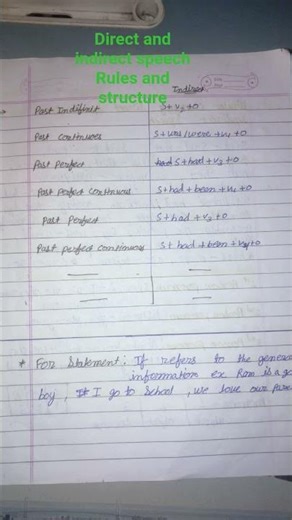 Direct and
indirect speech
Rules and
structure
Indirect
Past Indefinit S+V2+O
Past continuous S+was/were+V4+O
Past Perfect had S+had+V3+O
Past perfect continuous S+had+been+V4+O
Past perfect S+had+V3+O
Past perfect continuous S+had+been+V4+O
* For Statement: If refers to the genera
information ex Ram is a go
boy, If I go to school, we love our pare